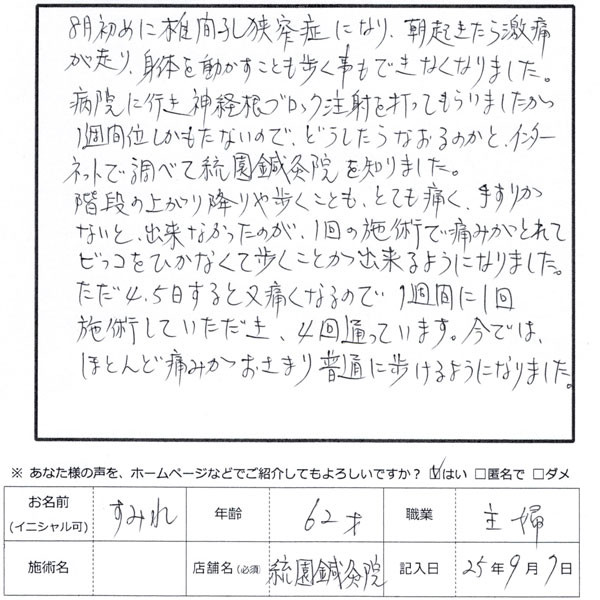 8月初めに椎間孔狭窄症になり、朝起きたら激痛
が走り、身体を動かすことも歩く事もできなくなりました。
病院に行き神経根ブロック注射を打ってもらいましたが
1週間位しかもたないので、どうしたらなおるのかと、インター
ネットで調べて統園鍼灸院を知りました。
階段の上がり降りや歩くことも、とても痛く、手すりが
ないと、出来なかったのが、1回の施術で痛みがとれて
ビッコをひかなくて歩くことが出来るようになりました。
ただ4.5日すると又痛くなるので1週間に1回
施術していただき、4回通っています。今では、
ほとんど痛みがおさまり普通に歩けるようになりました。
※ あなた様の声を、ホームページなどでご紹介してもよろしいですか？ ☑はい □匿名で □ダメ
お名前 (イニシャル可) すみれ 年齢 62才 職業 主婦
施術名 店舗名(必須) 統園鍼灸院 記入日 25年9月7日